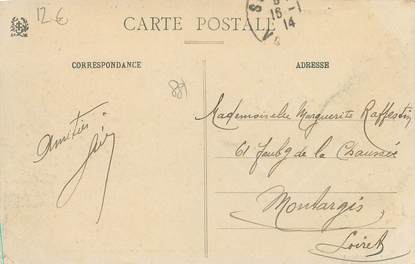 12€
CARTE POSTALE
16 -1
14
CORRESPONDANCE
ADRESSE
Amitiés
Mademoiselle Marguerite Raffestin
61 Faubg de la Chaussée
Montargis
Loiret